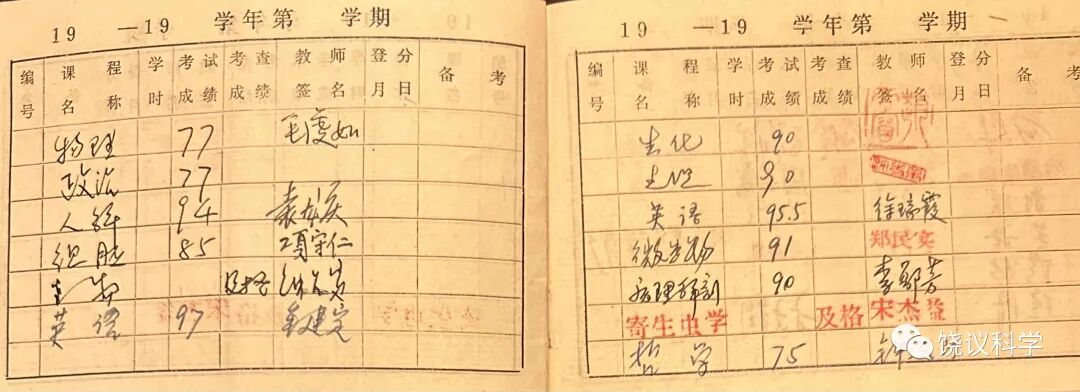 19 —19 学年第 学期
编号 课程名称 学时 考试成绩 考查成绩 教师签名 登分月日 备考
物理 77 毛虔如
政治 77
人解 94 袁
组胚 85 项守仁
生物 及格
英语 97
19 —19 学年第 学期
编号 课程名称 学时 考试成绩 考查成绩 教师签名 登分月日 备考
生化 90
生理 90
英语 95.5 徐瑞霞
微生物 91 郑民实
病理 90 李郎芳
寄生虫学 及格 宋杰益
哲学 75
饶议科学